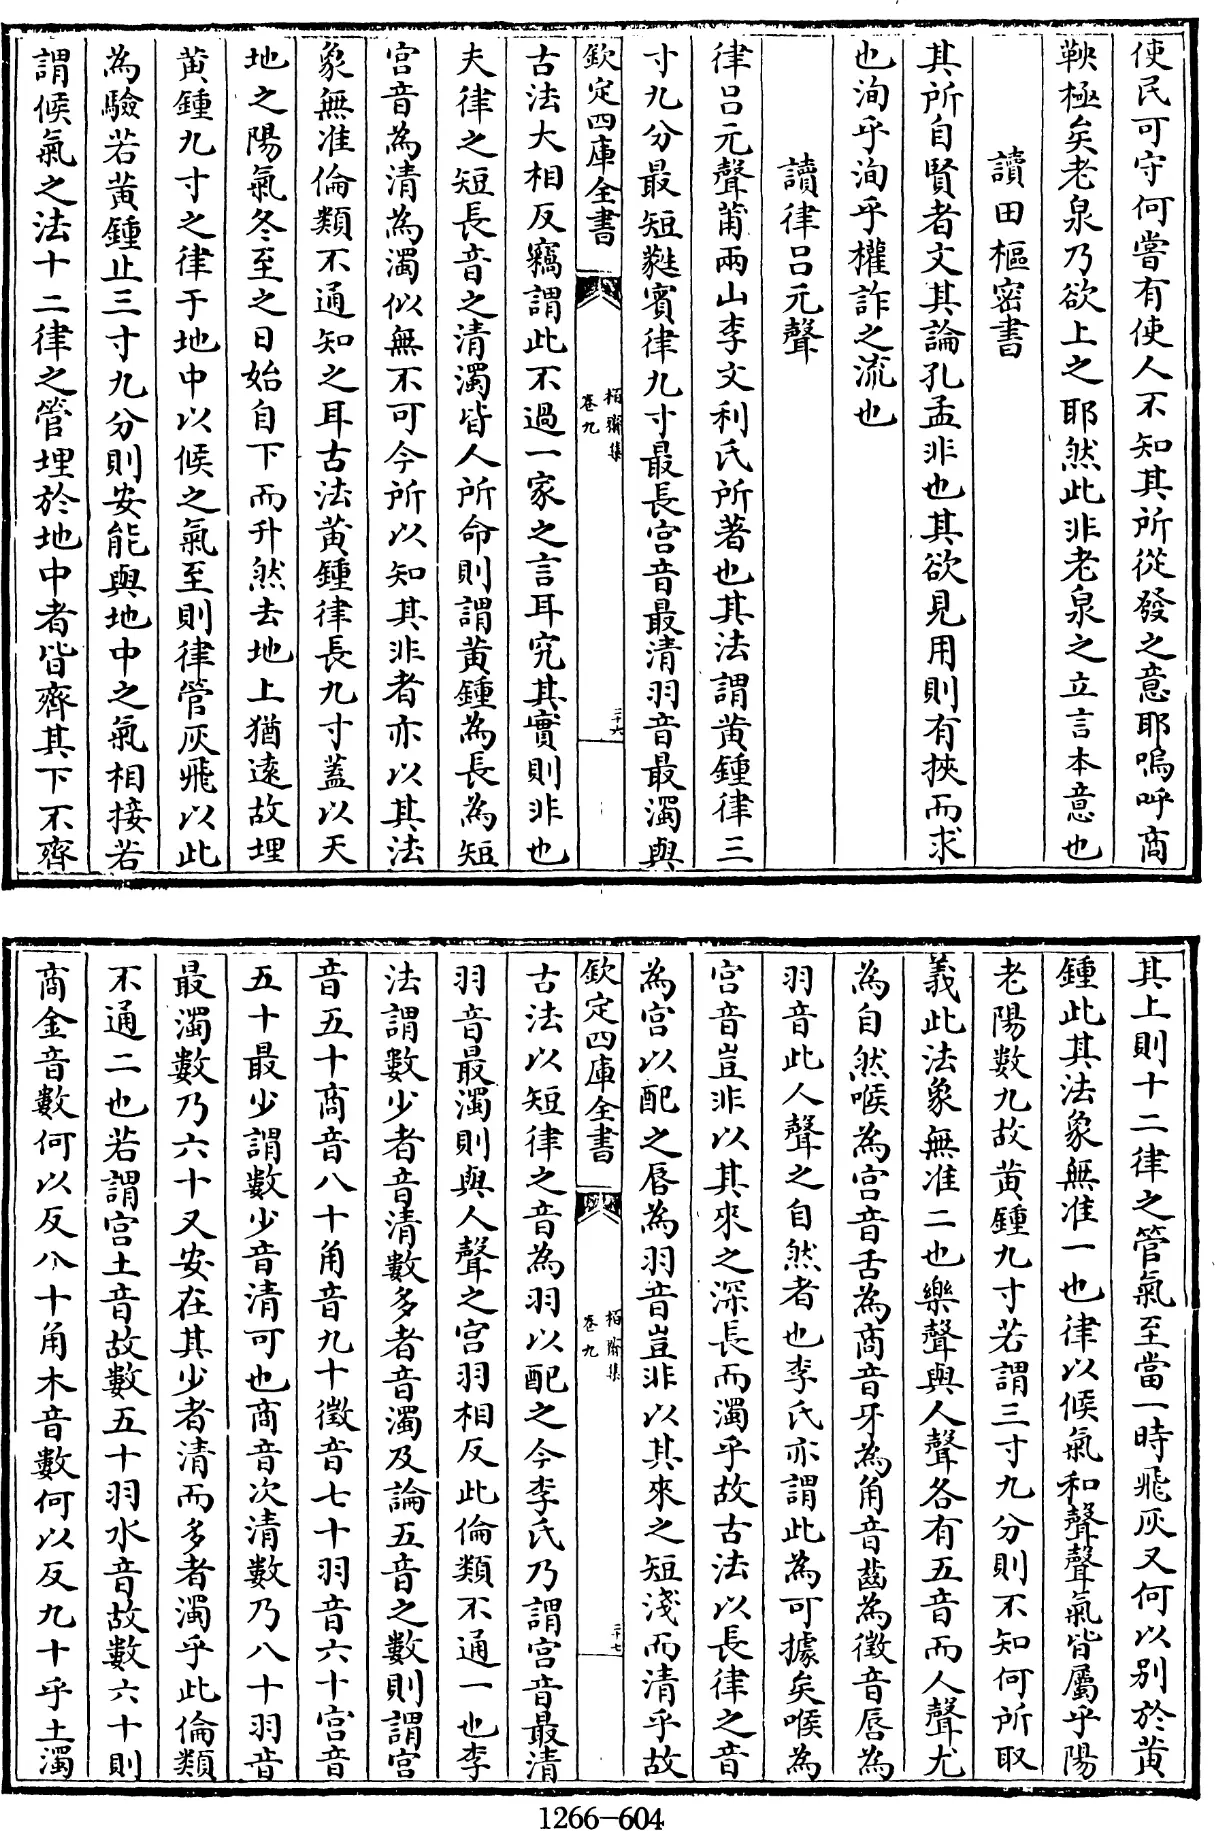 使民可守何嘗有使人不知其所從發之意耶嗚呼商
鞅極矣老泉乃欲上之耶然此非老泉之立言本意也
讀田樞密書
其所自賢者文其論孔孟非也其欲見用則有挾而求
也洵乎洵乎權詐之流也
讀律呂元聲
律呂元聲莆兩山李文利氏所著也其法謂黄鍾律三
寸九分最短蕤賓律九寸最長宫音最清羽音最濁與
欽定四庫全書
栢齋集
卷九
三十六
古法大相反竊謂此不過一家之言耳究其實則非也
夫律之短長音之清濁皆人所命則謂黄鍾為長為短
宫音為清為濁似無不可今所以知其非者亦以其法
象無准倫類不通知之耳古法黄鍾律長九寸蓋以天
地之陽氣冬至之日始自下而升然去地上猶逺故埋
黄鍾九寸之律于地中以候之氣至則律管灰飛以此
為驗若黄鍾止三寸九分則安能與地中之氣相接若
謂候氣之法十二律之管埋於地中者皆齊其下不齊
其上則十二律之管氣至當一時飛灰又何以別於黄
鍾此其法象無准一也律以候氣和聲聲氣皆屬乎陽
老陽數九故黄鍾九寸若謂三寸九分則不知何所取
義此法象無准二也樂聲與人聲各有五音而人聲尤
為自然喉為宫音舌為商音牙為角音齒為徵音唇為
羽音此人聲之自然者也李氏亦謂此為可據矣喉為
宫音豈非以其來之深長而濁乎故古法以長律之音
為宫以配之唇為羽音豈非以其來之短淺而清乎故
欽定四庫全書
栢齋集
卷九
三十七
古法以短律之音為羽以配之今李氏乃謂宫音最清
羽音最濁則與人聲之宫羽相反此倫類不通一也李
法謂數少者音清數多者音濁及論五音之數則謂宫
音五十商音八十角音九十徵音七十羽音六十宫音
五十最少謂數少音清可也商音次清數乃八十羽音
最濁數乃六十又安在其少者清而多者濁乎此倫類
不通二也若謂宫土音故數五十羽水音故數六十則
商金音數何以反八十角木音數何以反九十乎土濁
1266-604